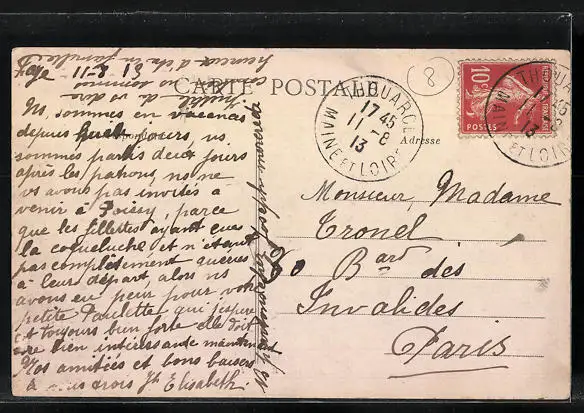 CARTE POSTALE
Correspondance
Adresse
8
10c
POSTES
THOUARCÉ
17 45
11 -8
13
MAINE ET LOIRE
THOUARCÉ
11 -8
13
MAINE ET LOIRE
11-8 13
Ns, sommes en vacances
depuis huit jours, ns
sommes partis deux jours
après les patrons, ns ne
vs avons pas invités à
venir à Poissy, parce
que les fillettes ayant eues
la coqueluche, et n'étant
pas complètement guéries
à leur départ, alors ns
avons eu peur pour votre
petite Paulette qui j'espère
est toujours bien forte elle doit
être bien intéressante maintenant
Nos amitiés et bons baisers
à vous trois Elisabeth.
Monsieur, Madame
Tronel
80 Bard des
Invalides
Paris